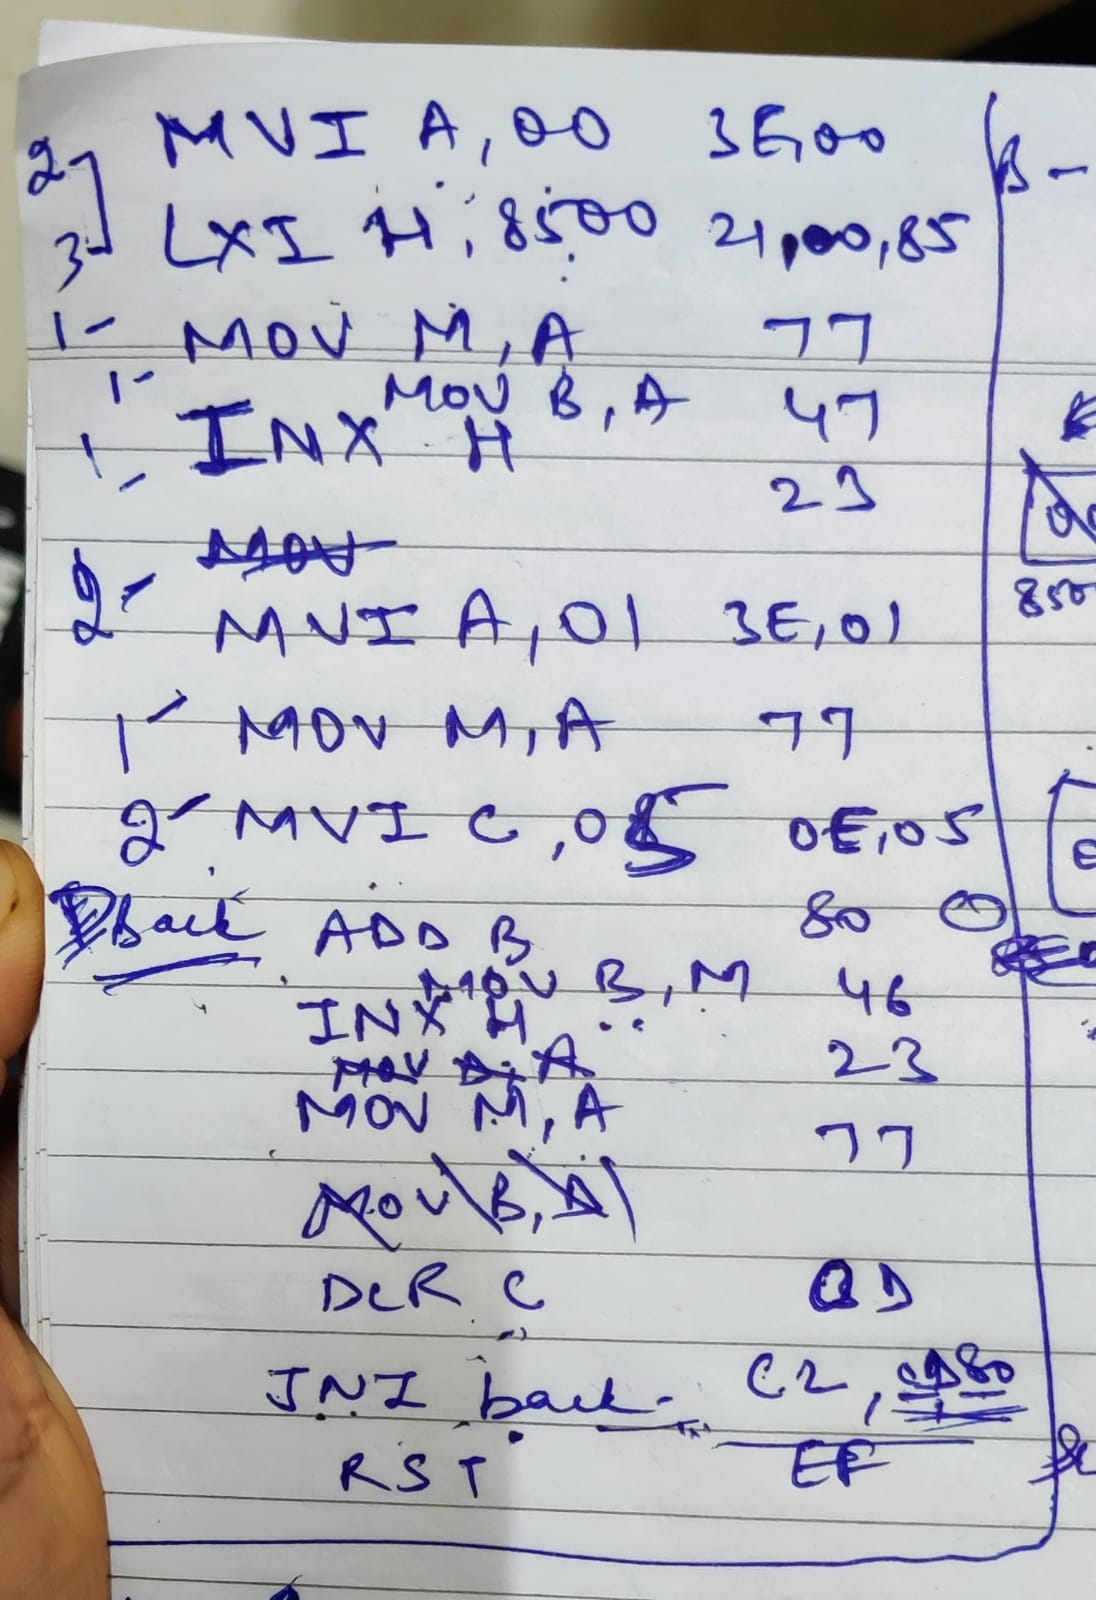 2 MVI A, 00 3E,00
3 LXI H, 8500 21,00,85
1- MOV M, A 77
1- MOV B, A 47
1- INX H 23
MOV
2- MVI A, 01 3E, 01
1- MOV M, A 77
2- MVI C, 05 0E,05
Back ADD B 80
MOV B, M 46
INX H 23
MOV A
MOV M, A 77
MOV B, A
DCR C 0D
JNZ back C2, 80
RST EF
B -
850